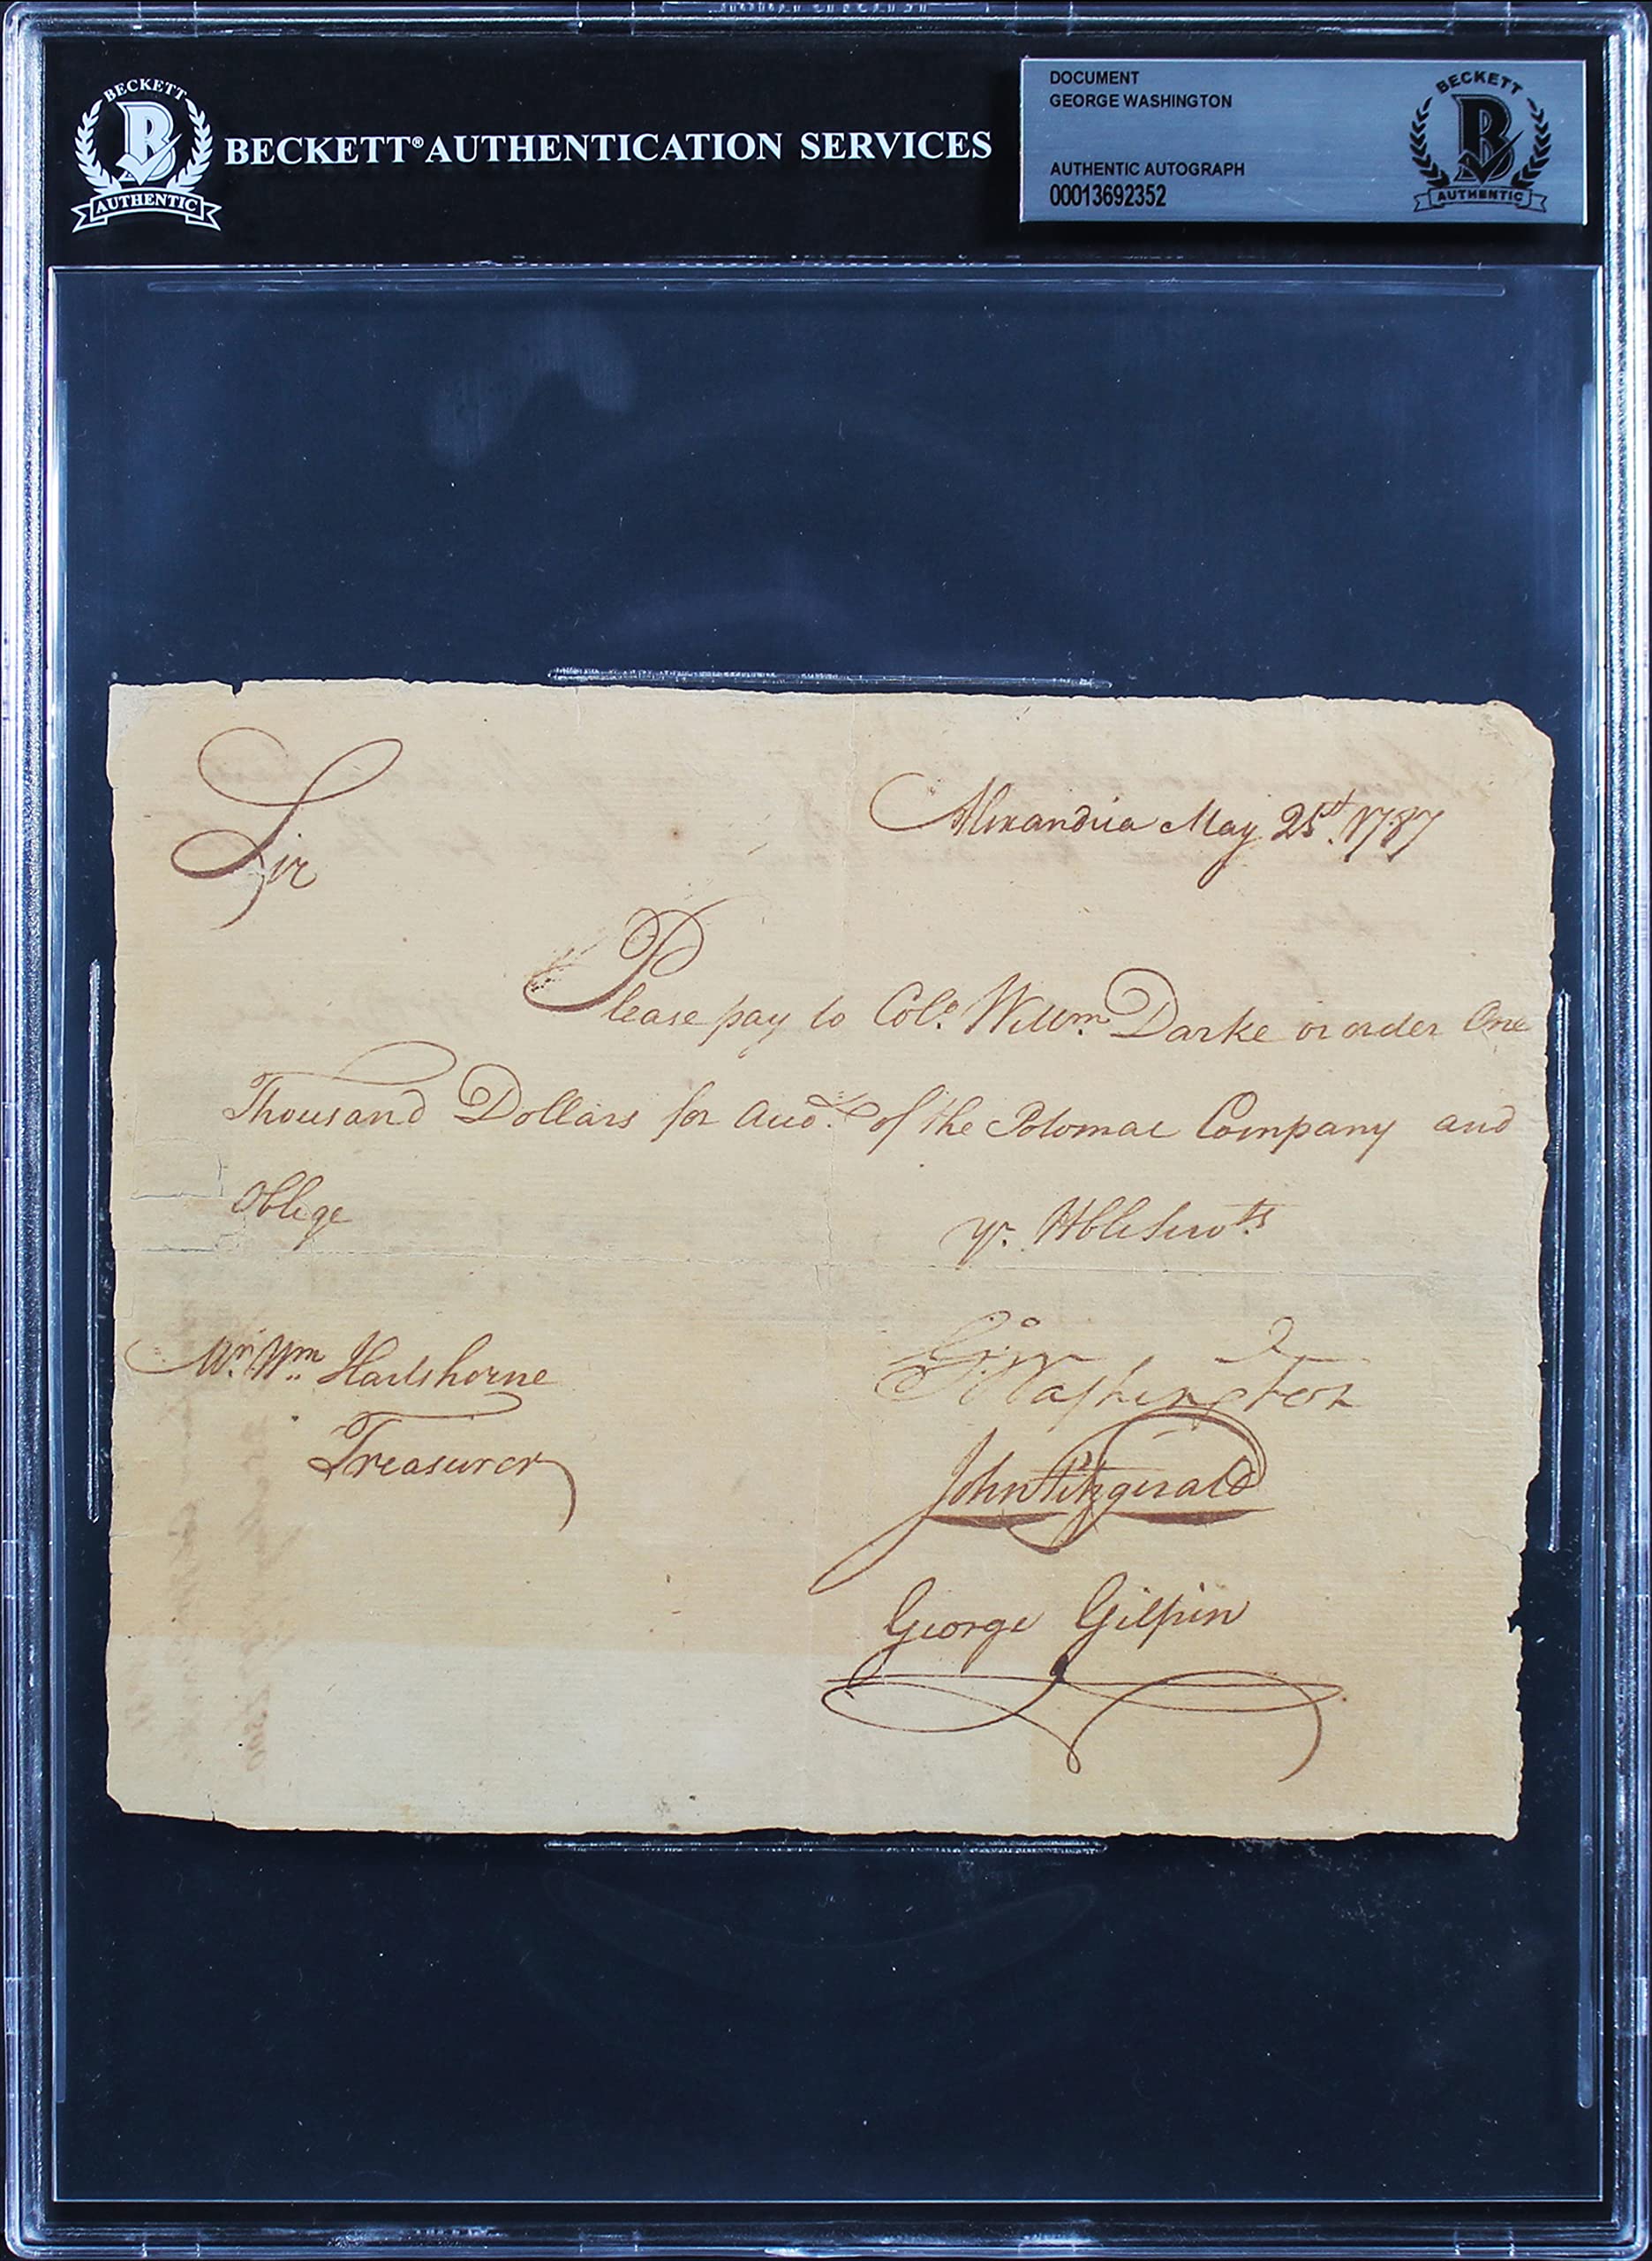 BECKETT
B
AUTHENTIC
BECKETT® AUTHENTICATION SERVICES
DOCUMENT
GEORGE WASHINGTON
AUTHENTIC AUTOGRAPH
00013692352
BECKETT
B
AUTHENTIC
Sir
Alexandria May 25th. 1787
Please pay to Colo. Willm. Darke or order One
Thousand Dollars for Acco. of the Potomac Company and
Oblige
yr. Hble Servts
Mr. Wm. Hartshorne
Treasurer
Go: Washington
John Fitzgerald
George Gilpin